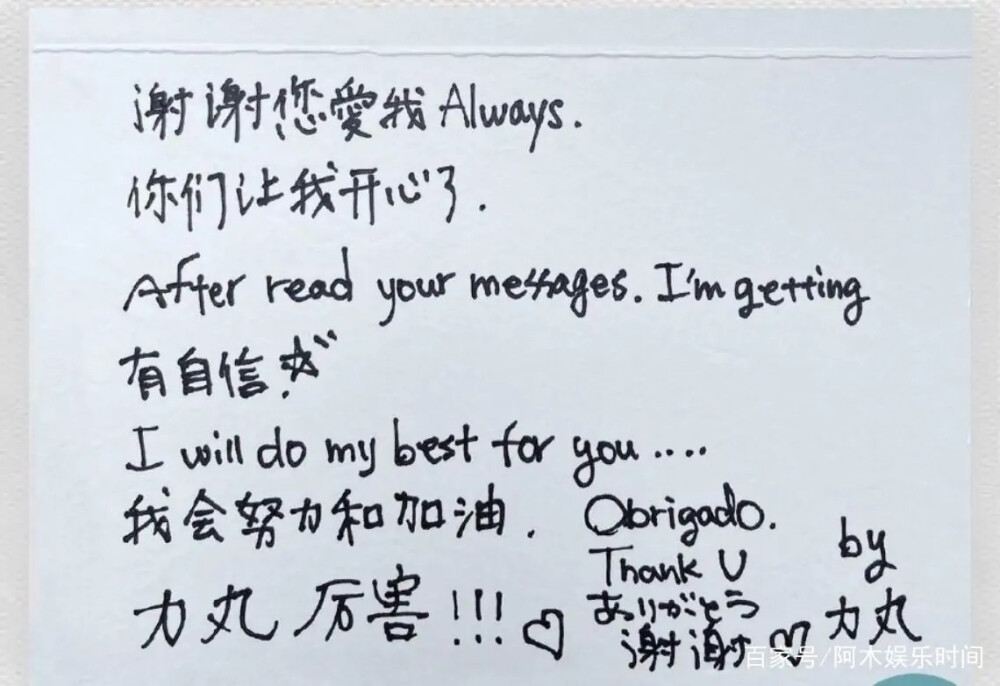 谢谢您愛我 Always.
你们让我开心了.
After read your messages. I'm getting
有自信!☆
I will do my best for you ....
我会努力和加油. Obrigado.
Thank U
力丸 厉害!!! ♡
ありがとう
谢谢 ♡
by
力丸
百家号/阿木娱乐时间